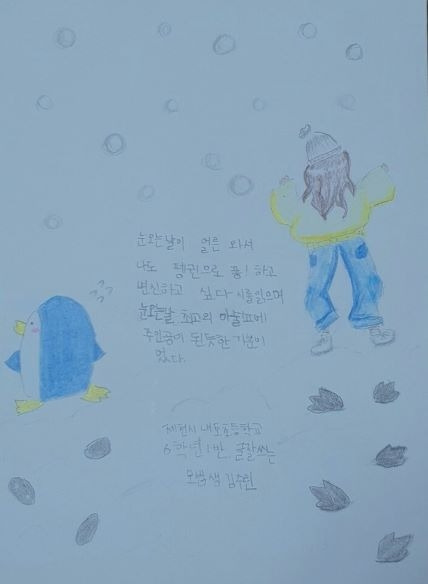 눈오는날이 얼른 와서
나도 펭귄으로 퐁! 하고
변신하고 싶다 시를읽으며
눈오는날 최고의 마술쇼에
주인공이 된듯한 기분이
었다.
제천시 내포초등학교
6학년1반, 글잘쓰는
모범생